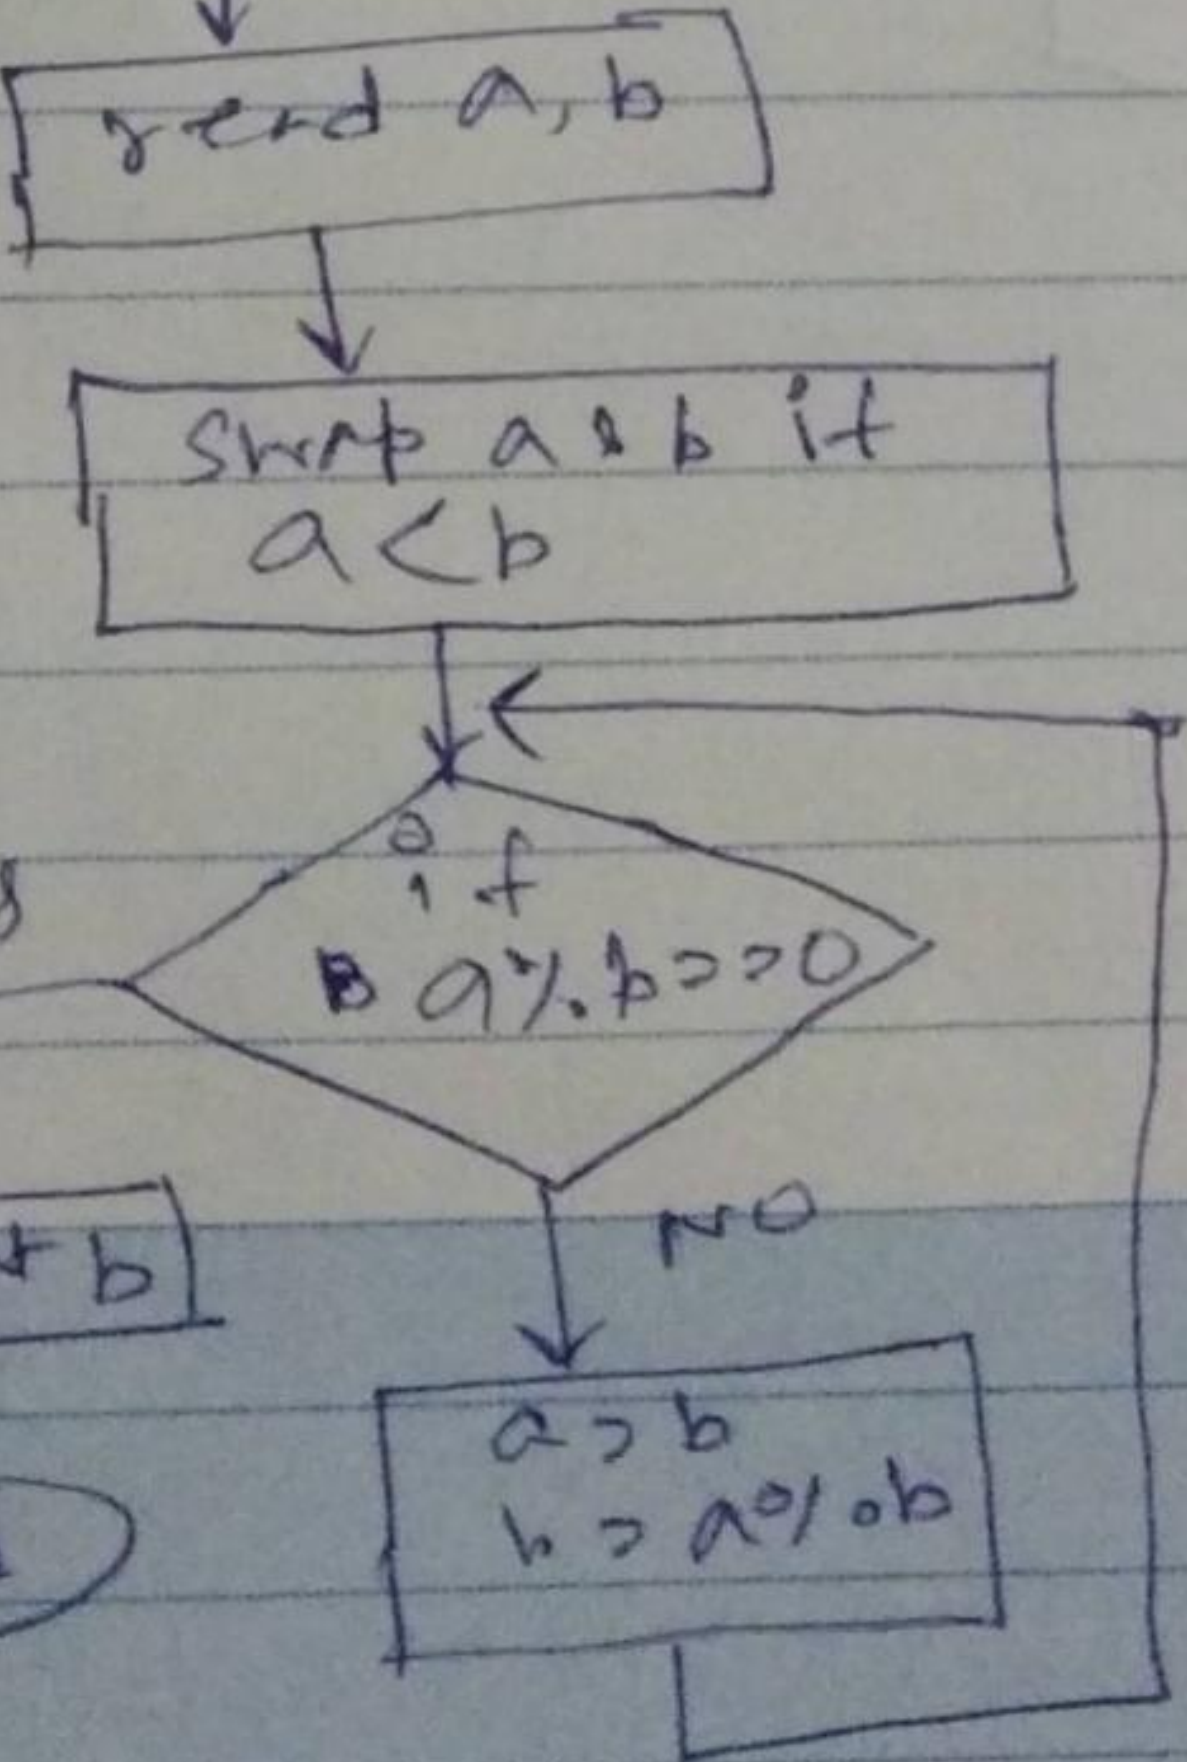 read a, b
Swap a & b if
a < b
if
a % b == 0
NO
b
a = b
b = a % b